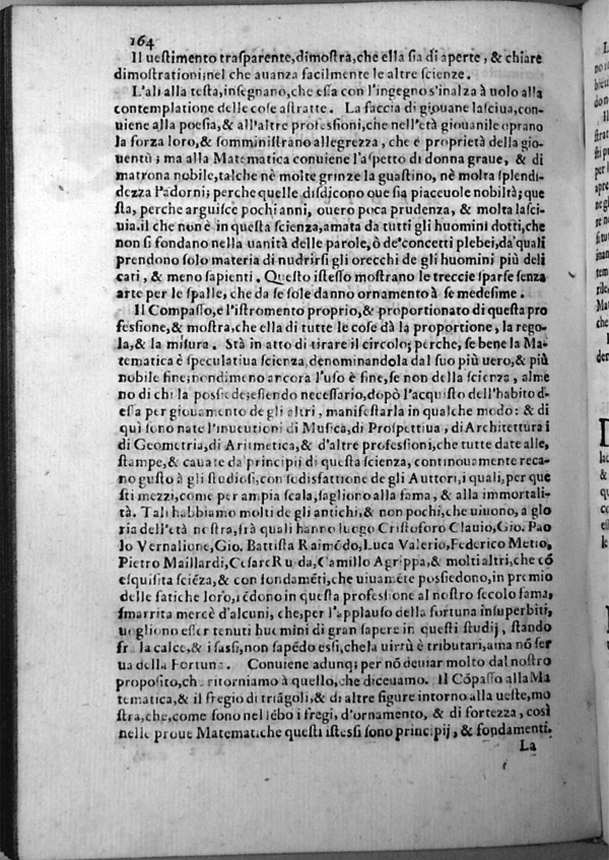 164
Il ueſtimento traſparente,dimoſtra,che ella ſia di aperte, & chiare
dimoſtrationi;nel che auanza facilmente le altre ſcienze.
L'ali alla teſta,inſegnano,che eſſa con l'ingegno s'inalza à uolo alla
contemplatione delle coſe aſtratte. La faccia di giouane laſciua,con-
uiene alla poeſia,& all'altre profeſſioni,che nell'età giouanile oprano
la forza loro,& ſomminiſtrano allegrezza, che è proprietà della gio-
uentù; ma alla Matematica conuiene l'aſpetto di donna graue, & di
matrona nobile,talche nè molte grinze la guaſtino, nè molta ſplendi-
dezza l'adorni; perche quelle diſdicono oue ſia piaceuole nobiltà; que
ſta, perche arguiſce pochi anni, ouero poca prudenza, & molta laſci-
uia.il che non è in queſta ſcienza,amata da tutti gli huomini dotti,che
non ſi fondano nella uanità delle parole,ò de'concetti plebei,da'quali
prendono ſolo materia di nudrirſi gli orecchi de gli huomini più deli
cati, & meno ſapienti. Queſto iſteſſo moſtrano le treccie ſparſe ſenza
arte per le ſpalle, che da ſe ſole danno ornamento à ſe medeſime.
Il Compaſſo,è l'iſtromento proprio,& proportionato di queſta pro
feſſione,& moſtra,che ella di tutte le coſe dà la proportione, la rego-
la,& la miſura. Stà in atto di tirare il circolo; perche, ſe bene la Ma-
tematica è ſpeculatiua ſcienza,denominandola dal ſuo più uero,& più
nobile fine;nondimeno ancora l'uſo è fine,ſe non della ſcienza, alme
no di chi la poſſiede;eſſendo neceſſario,dopò l'acquiſto dell'habito d'
eſſa per giouamento de gli altri, manifeſtarla in qualche modo: & di
quì ſono nate l'inuentioni di Muſica,di Proſpettiua, di Architettura
di Geometria,di Aritmetica,& d'altre profeſſioni,che tutte date alle,
ſtampe,& cauate da principii di queſta ſcienza, continouamente reca-
no guſto à gli ſtudioſi,con ſodisfattione de gli Auttori,i quali,per que
ſti mezzi,come per ampia ſcala,ſagliono alla fama, & alla immortali-
tà. Tali habbiamo molti de gli antichi,& non pochi,che uiuono, a glo
ria dell'età noſtra,frà quali hanno luogo Criſtoforo Clauio,Gio. Pao
lo Vernalione,Gio. Battiſta Raimódo,Luca Valerio,Federico Metio,
Pietro Maillardi,Ceſare Ruida,Camillo Agrippa,& molti altri,che cō
eſquiſita ſciēza,& con fondamēti,che uiuamēte poſſiedono,in premio
delle fatiche loro,icédono in queſta profeſſione al noſtro ſecolo fama,
ſmarrita mercè d'alcuni, che,per l'applauſo della fortuna inſuperbiti,
uogliono eſſer tenuti huomini di gran ſapere in queſti ſtudij, ſtando
la calce,& i ſaſſi,non ſapēdo eſſi,che la uirtù è tributari,ama nō ſer
ua della Fortuna. Conuiene adunq; per nō deuiar molto dal noſtro
propoſito,ch, ritorniamo à quello,che diceuamo. Il Cōpaſſo alla Ma
tematica,& il fregio di triāgoli,& di altre figure intorno alla ueſte,mo
ſtra,che,come ſono nel lēbo i fregi, d'ornamento, & di fortezza, così
nelle proue Matematiche queſti iſteſſi ſono principij, & fondamenti.
La